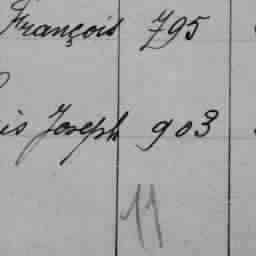 François 795
is Joseph 903
11